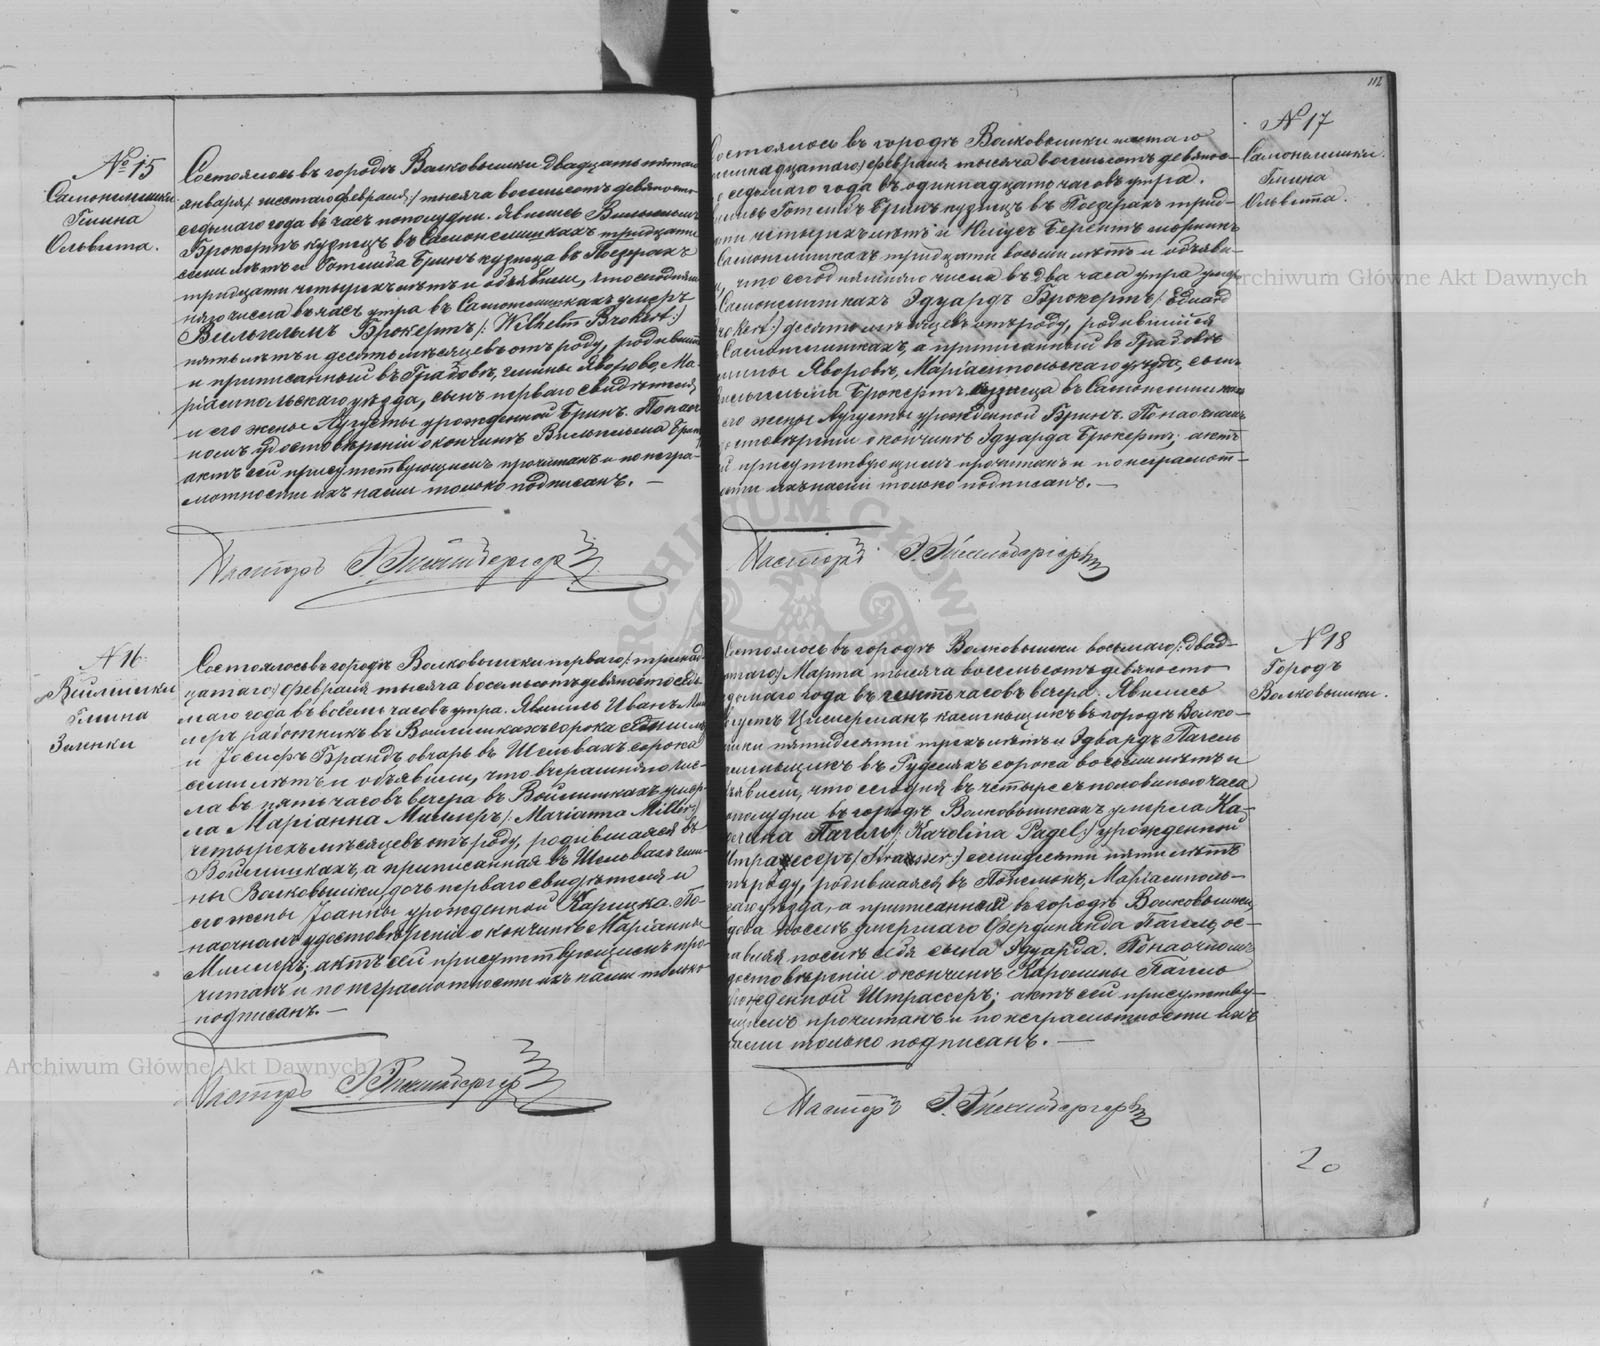 № 15
Самонелишки
Гмина
Ольвита.
Состоялось въ городѣ Волковышки двадцать пятаго
января /: шестаго февраля :/ тысяча восемьсотъ девяносто
седьмаго года въ часъ пополудни. Явились Вильгельмъ
Брокертъ кузнецъ въ Самонелишкахъ тридцати
семи лѣтъ и Готлибъ Бринъ кузнецъ въ
тридцати четырехъ лѣтъ и объявили, что сегодняш-
няго числа въ часъ утра въ Самонелишкахъ умеръ
Вильгельмъ Брокертъ /: Wilhelm Brokert :/
пять лѣтъ и десять мѣсяцевъ отъ роду, родившійся
и приписанный въ Гражовѣ, гмины Яворово, Ма-
ріампольскаго уѣзда, сынъ перваго свидѣтеля
и его жены Августы урожденной Бринъ. По наоч-
номъ удостовѣреніи о кончинѣ Вильгельма Брокертъ
актъ сей присутствующимъ прочитанъ и по негра-
мотности ихъ нами только подписанъ. —
Пасторъ
№ 16.
Войлишки
Гмина
Зеленки
Состоялось въ городѣ Волковышки перваго /: тринад-
цатаго :/ февраля тысяча восемьсотъ девяносто седь-
маго года въ восемь часовъ утра. Явились Иванъ Мил-
леръ работникъ въ Войлишкахъ сорока лѣтъ
и Іосифъ Брандъ овчаръ въ Шельвахъ сорока
семи лѣтъ и объявили, что вчерашняго чис-
ла въ пять часовъ вечера въ Войлишкахъ умер-
ла Маріанна Миллеръ /: Marianna Miller :/
четырехъ мѣсяцевъ отъ роду, родившаяся въ
Войлишкахъ, а приписанная въ Шельвахъ гми-
ны Волковышки, дочь перваго свидѣтеля и
его жены Іоанны урожденной Карицка. По
наочномъ удостовѣреніи о кончинѣ Маріанны
Миллеръ, актъ сей присутствующимъ про-
читанъ и по неграмотности ихъ нами только
подписанъ. —
Пасторъ
112
№ 17
Самонелишки.
Гмина
Ольвита.
Состоялось въ городѣ Волковышки шестаго
февраля тысяча восемьсотъ девянос-
седьмаго года въ одиннадцать часовъ утра.
Готлибъ Бринъ кузнецъ въ трид-
четырехъ лѣтъ и Берентъ
Самонелишкахъ тридцати восьми лѣтъ и объяви-
что сегодняшняго числа въ два часа утра умеръ
Самонелишкахъ Эдуардъ Брокертъ /: Eduard
Brokert :/ десять мѣсяцевъ отъ роду, родившійся
Самонелишкахъ, а приписанный въ Гражовѣ
гмины Яворовъ, Маріампольскаго уѣзда, сынъ
Вильгельма Брокертъ кузнеца въ Самонелишкахъ
его жены Августы урожденной Бринъ. По наочномъ
достовѣреніи о кончинѣ Эдуарда Брокертъ, актъ
присутствующимъ прочитанъ и по неграмот-
ности ихъ нами только подписанъ. —
Пасторъ
№ 18
Городъ
Волковышки.
Состоялось въ городѣ Волковышки восьмаго /: двад-
цатаго :/ Марта тысяча восемьсотъ девяносто
седьмаго года въ часовъ вечера. Явились
Августъ Цимерманъ каменьщикъ въ городѣ Волко-
вышки пятидесяти трехъ лѣтъ и Эдвардъ Пагель
каменьщикъ въ сорока восьми лѣтъ и
объявили, что сегодня въ четыре съ половиною часа
пополудни въ городѣ Волковышкахъ умерла Ка-
ролина Пагель /: Karolina Pagel :/ урожденной
Штрассеръ /: Strasser :/ семидесяти пяти лѣтъ
отъ роду, родившаяся въ Понемонѣ, Маріамполь-
скаго уѣзда, а приписанная въ городѣ Волковышки,
вдова послѣ умершаго Фердинанда Пагель, ос-
тавляя послѣ себя сына Эдуарда. По наочномъ
удостовѣреніи о кончинѣ Каролины Пагель
урожденной Штрассеръ, актъ сей присутству-
ющимъ прочитанъ и по неграмотности ихъ
нами только подписанъ. —
Пасторъ
20
Archiwum Główne Akt Dawnych
Archiwum Główne Akt Dawnych
ARCHIWUM GŁÓWNE